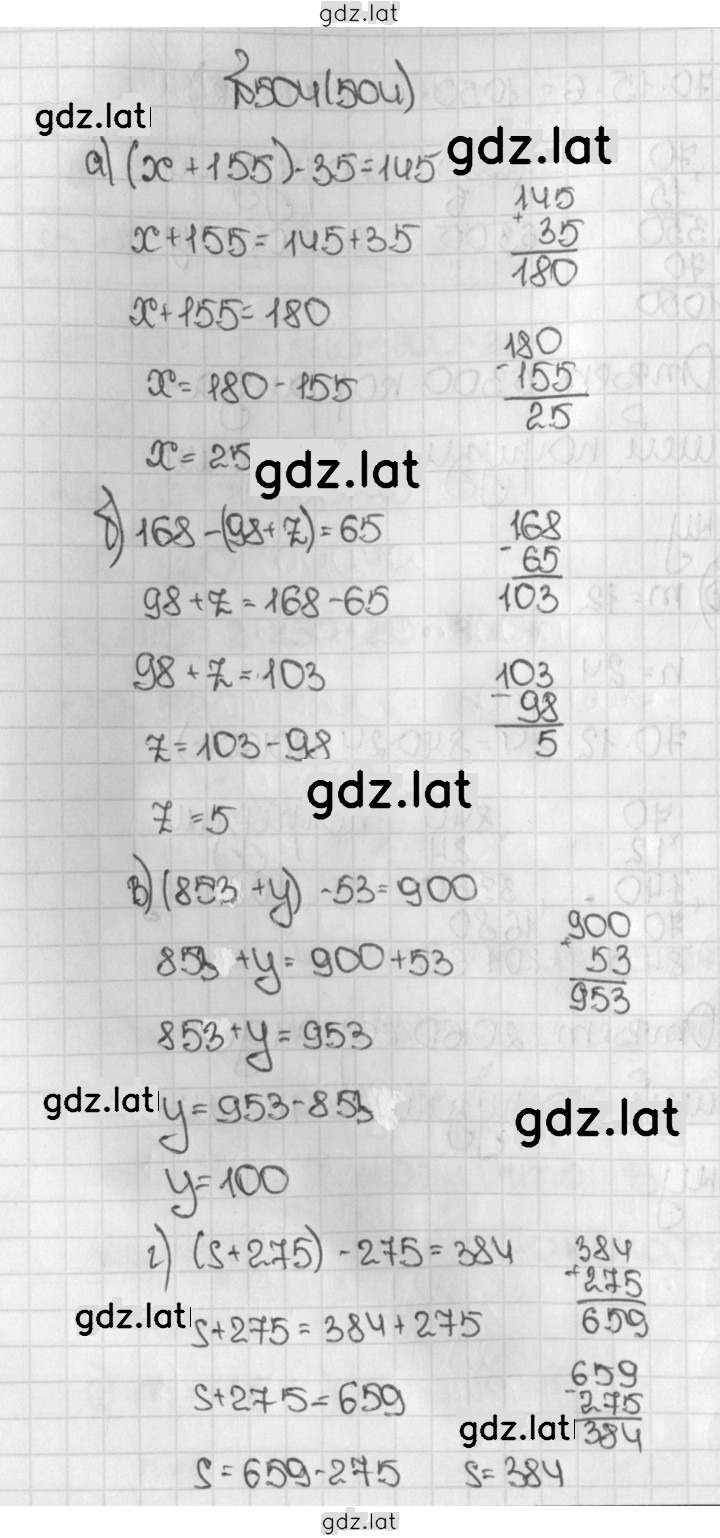 gdz.lat
№504(504)
gdz.lat
а) (x+155)-35=145
gdz.lat
x+155=145+35
145
+ 35
180
x+155=180
x=180-155
180
- 155
25
x=25
gdz.lat
б) 168-(98+z)=65
168
- 65
103
98+z=168-65
98+z=103
103
- 98
5
z=103-98
gdz.lat
z=5
в) (853+y)-53=900
900
+ 53
953
853+y=900+53
853+y=953
gdz.lat
y=953-853
gdz.lat
y=100
г) (s+275)-275=384
384
+ 275
659
gdz.lat
s+275=384+275
s+275=659
659
- 275
384
gdz.lat
s=659-275 s=384
gdz.lat